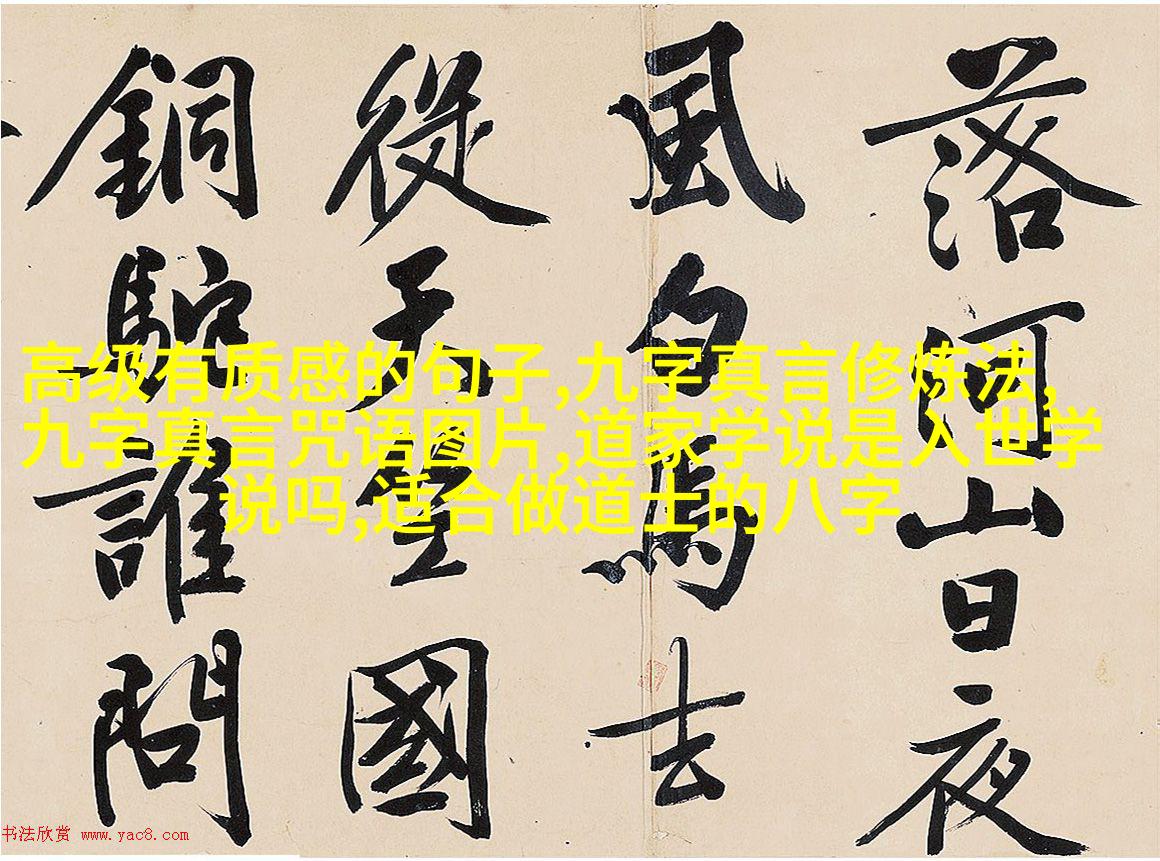 落河山日夜
風白馬去
從天竺國
銅駝誰問
高级有质感的句子,九字真言修炼法,
九字真言咒语图片,道家学说是入世学
说吗,适合做道士的八字
书法欣赏 www.yac8.com